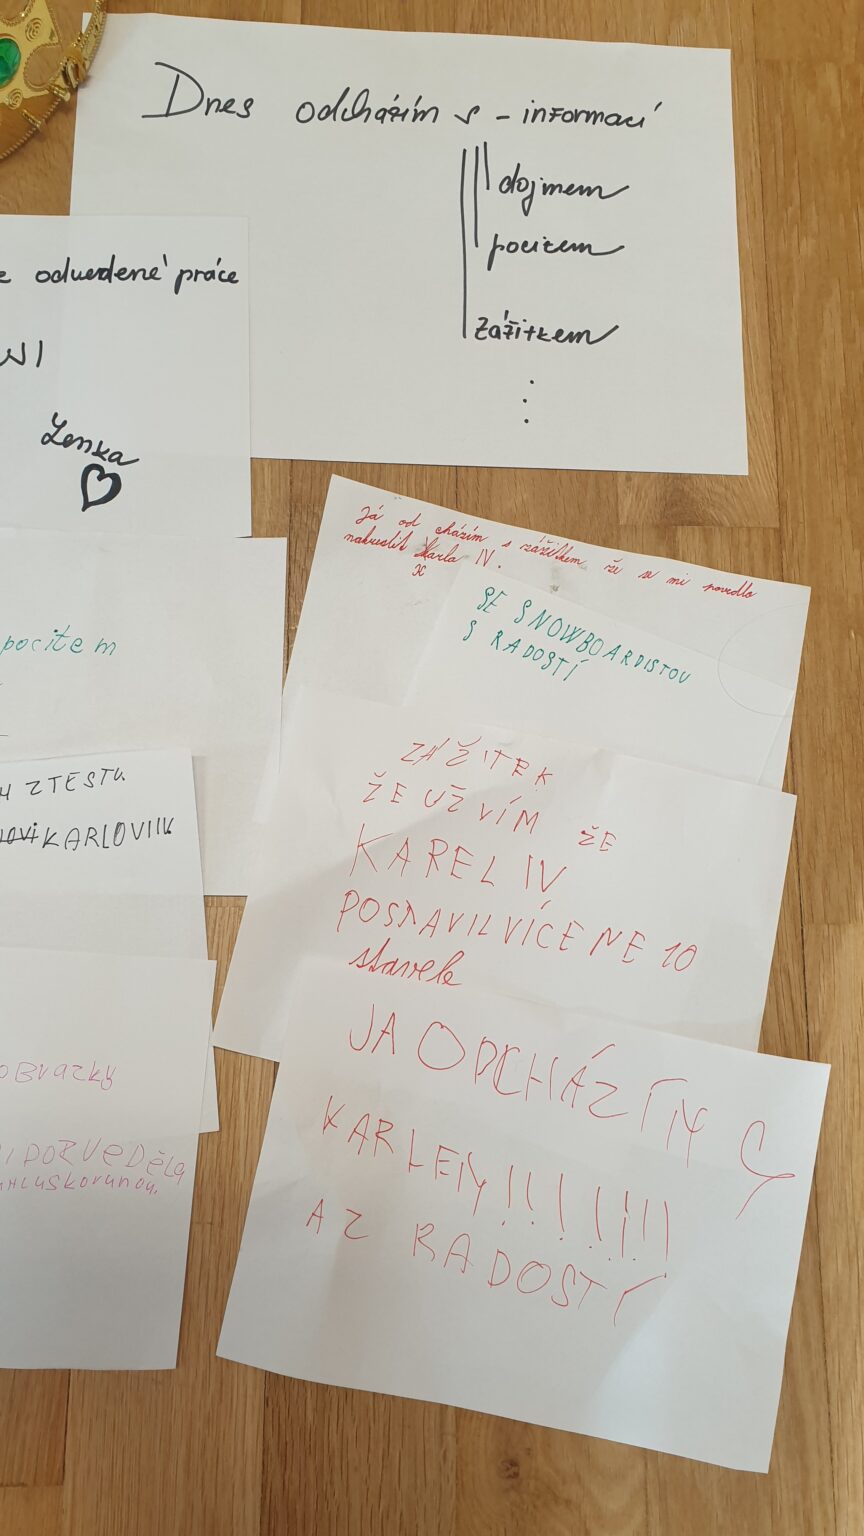 Dnes odcházím s - informací
dojmem
pocitem
zážitkem
odvedené práce
Lenka
pocitem
Já od cházím s zážitkem že se mi povedlo
nakreslit Karla IV.
SE SNOWBOARDISTOU
S RADOSTÍ
ZÁŽITEK
ŽE UŽ VÍM ŽE
KAREL IV
POSTAVIL VÍCE NE 10
stavele
Z TESTU
KARLOVI IV
JA ODCHÁZÍM S
KARLEM!!!!!!!
A Z RADOSTÍ
OBrazKy
DOZVEDĚLA